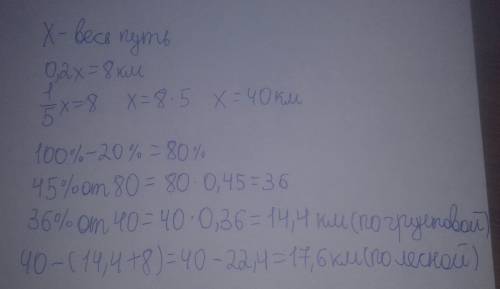 X - весь путь
0,2x=8км
1/5x=8 x=8·5 x=40км
100%-20%=80%
45%от 80=80·0,45=36
36%от 40=40·0,36=14,4 км(по грунтовой)
40-(14,4+8)=40-22,4=17,6км(по лесной)